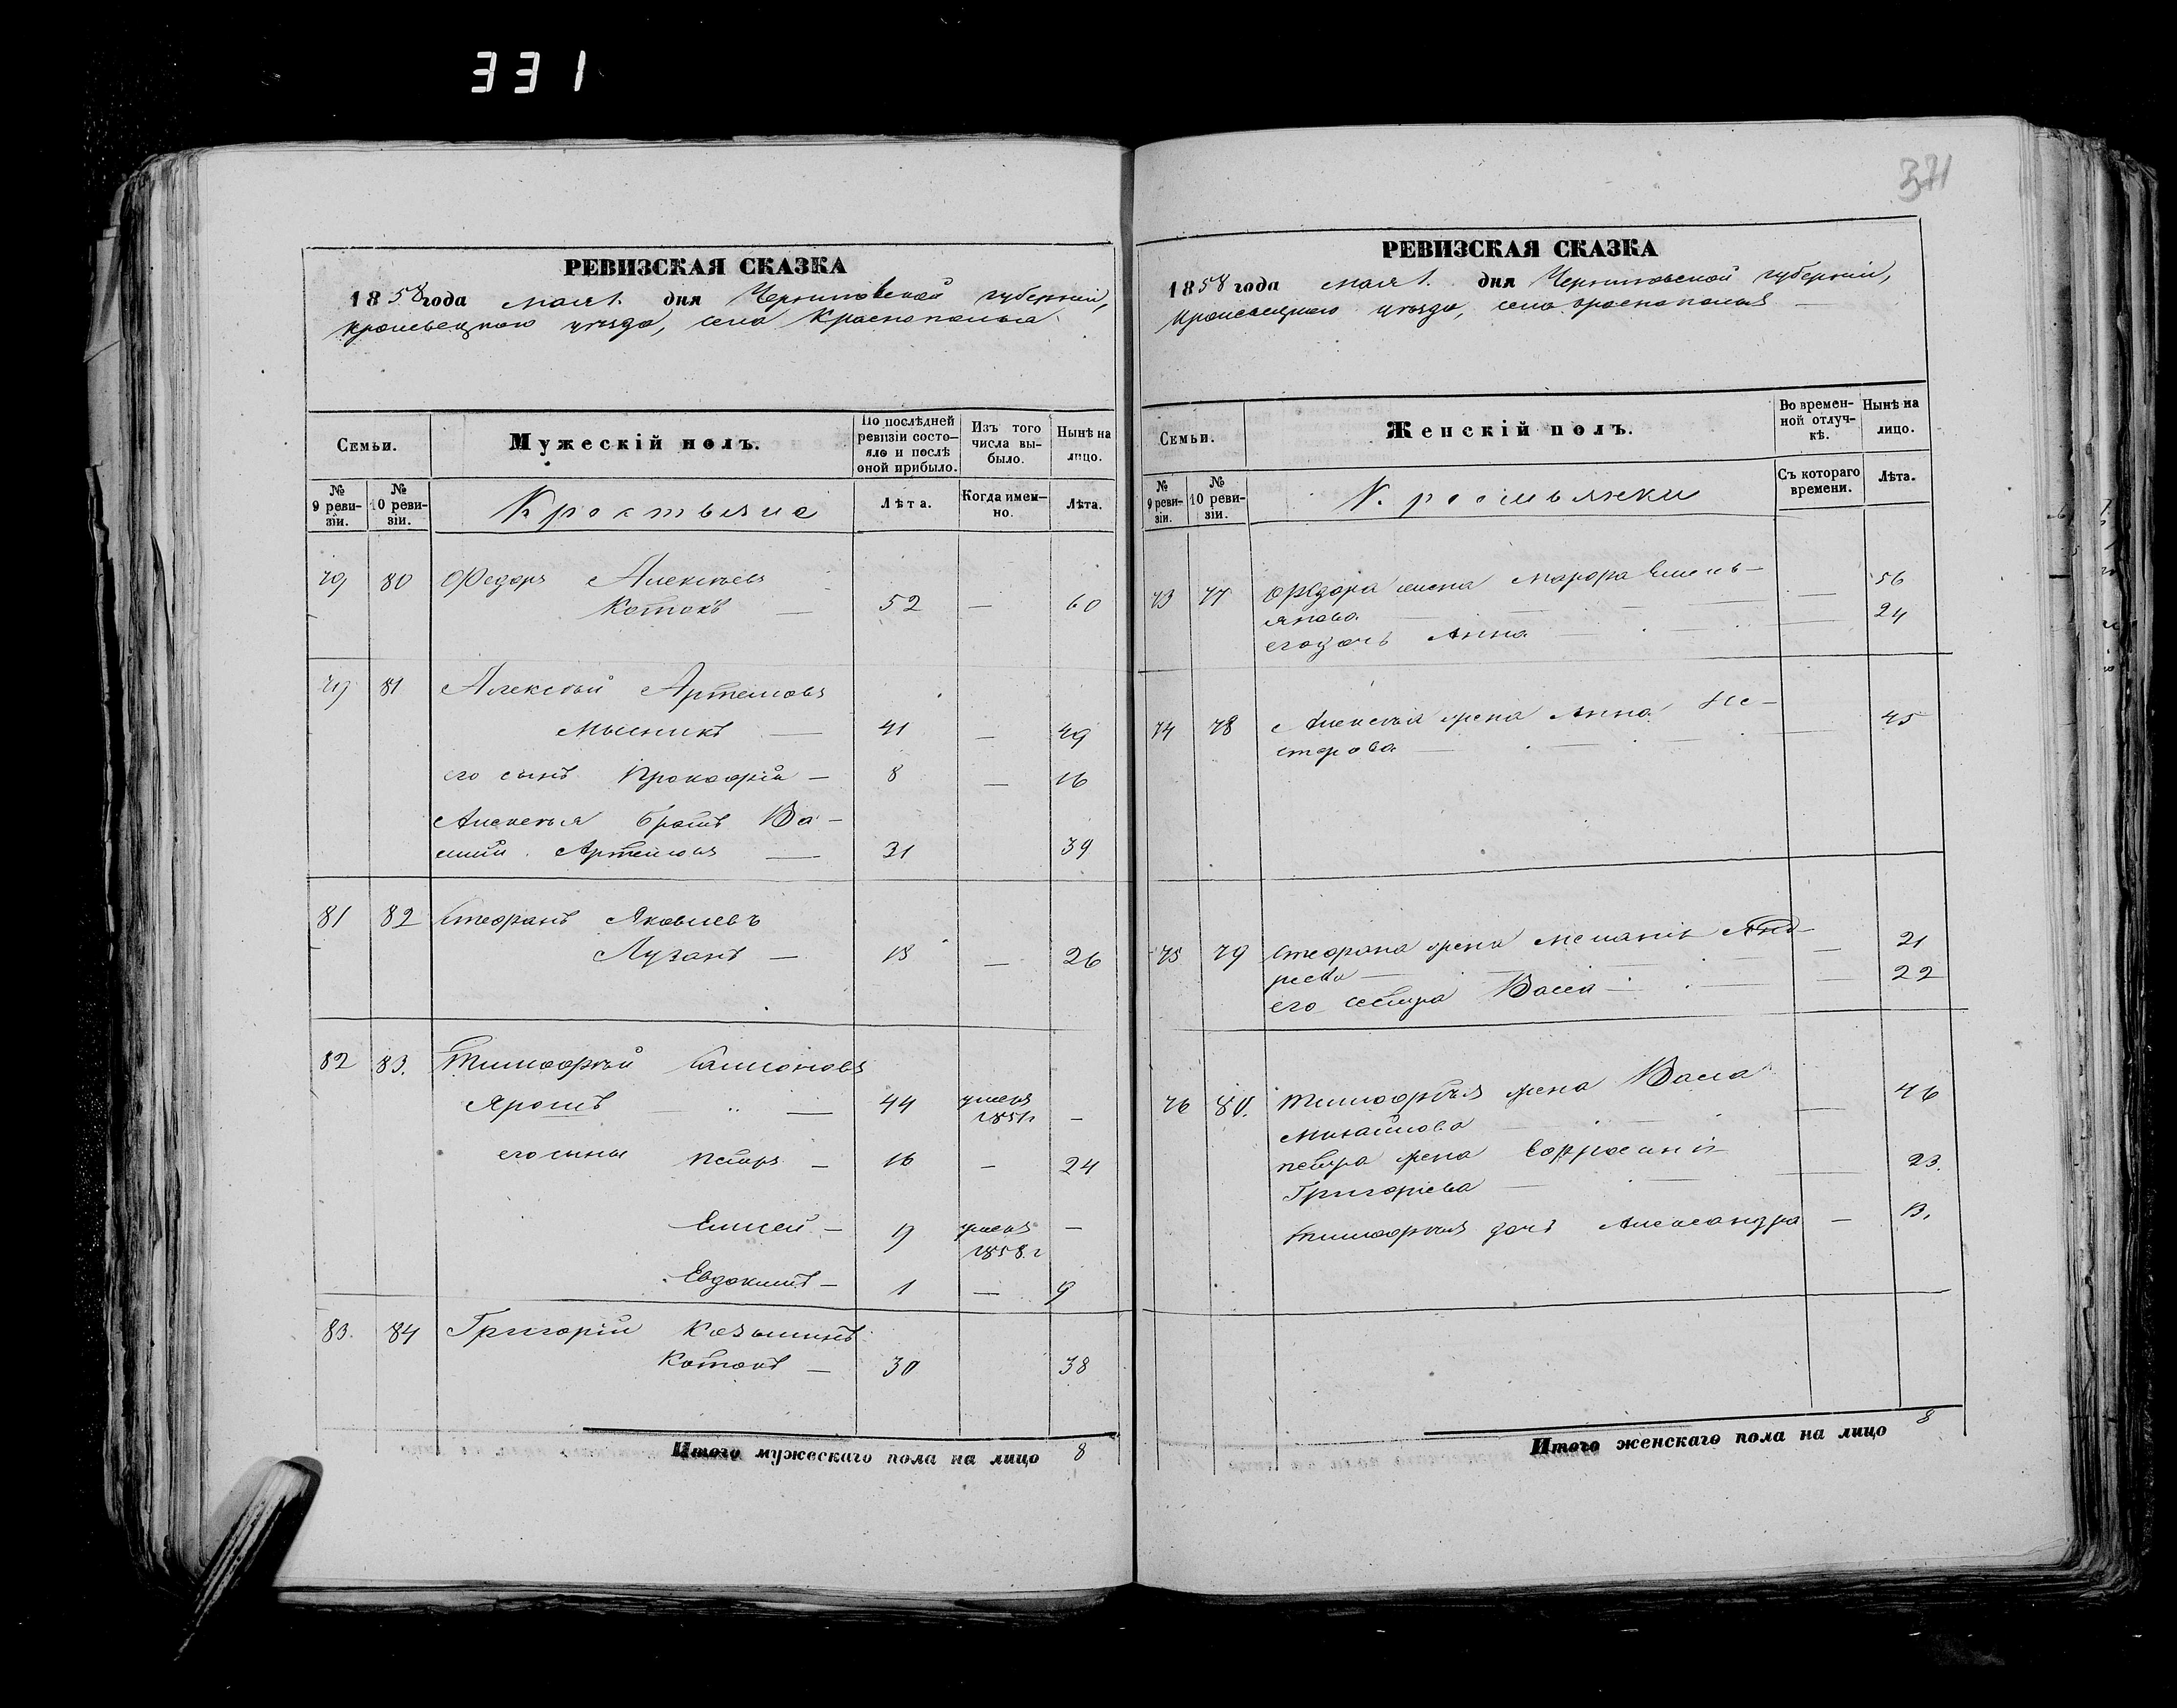 331
371
РЕВИЗСКАЯ СКАЗКА
1858 года мая 1. дня Черниговской губерніи,
Кролевецкаго уѣзда, села Краснополья
Семьи.
Мужескій полъ.
По послѣдней ревизіи состояло и послѣ оной прибыло.
Изъ того числа выбыло.
Нынѣ на лицо.
№ 9 ревизіи.
№ 10 ревизіи.
Крестьяне
Лѣта.
Когда именно.
Лѣта.
79 80 Федоръ Алексѣевъ
Котокъ — 52 — 60
79 81 Алексѣй Артемовъ
Мысникъ — 41 — 49
его сынъ Прокофій — 8 — 16
Алексѣя братъ Ва-
силій Артемовъ — 31 39
81 82 Стефанъ Яковлевъ
Лузанъ — 18 — 26
82 83. Тимофѣй Самсоновъ
Ярошъ — 44 умеръ 1851 г —
его сыны Петръ — 16 — 24
Елисей — 9 умеръ 1858. г —
Евдокимъ — 1 — 9
83. 84 Григорій Козьминъ
Котокъ — 30 38
Итого мужескаго пола на лицо 8
РЕВИЗСКАЯ СКАЗКА
1858 года мая 1. дня Черниговской губерніи,
Кролевецкаго уѣзда, села Краснополья —
Семьи.
Женскій полъ.
Во временной отлучкѣ.
Нынѣ на лицо.
№ 9 ревизіи.
№ 10 ревизіи.
Крестьянки
Съ котораго времени.
Лѣта.
73 77 Федора жена Марфа Емель-
янова — 56
его дочь Анна — 24
74 78 Алексѣя жена Анна Не-
стерова — 45
75 79 Стефана жена Меланія Анд-
реева — 21
его сестра Васса — 22
76 80. Тимофѣя жена Васса
Михайлова — 46
Петра жена Ефросинія
Григорьева — 23.
Тимофѣя дочь Александра — 13.
Итого женскаго пола на лицо 8